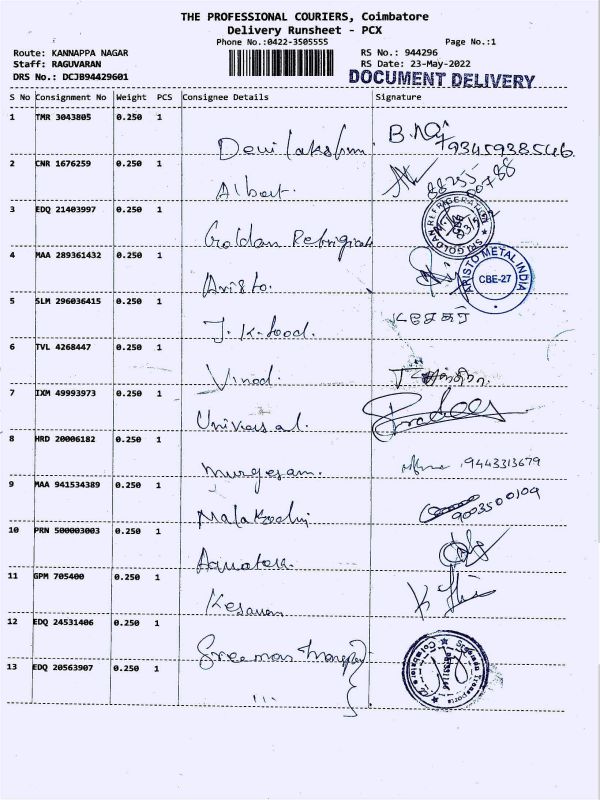 THE PROFESSIONAL COURIERS, Coimbatore
Delivery Runsheet - PCX
Phone No.:0422-3505555 Page No.:1
Route: KANNAPPA NAGAR RS No.: 944296
Staff: RAGUVARAN RS Date: 23-May-2022
DRS No.: DCJB94429601 DOCUMENT DELIVERY
S No Consignment No Weight PCS Consignee Details Signature
1 TMR 3043805 0.250 1
Devi Lakshmi 7934593854b
2 CNR 1676259 0.250 1
Albert.
3 EDQ 21403997 0.250 1
SRI GOLDAN REFRIGERATION
4 MAA 289361432 0.250 1
Aristo. ARISTO METAL INDIA CBE-27
5 SLM 296036415 0.250 1
J. K. food.
6 TVL 4268447 0.250 1
Vinod.
7 IXM 49993973 0.250 1
Universal.
8 HRD 20006182 0.250 1
Murgesam. 9443313679
9 MAA 941534389 0.250 1
9003500109
10 PRN 500003003 0.250 1
Aquatek.
11 GPM 705400 0.250 1
Kesavan
12 EDQ 24531406 0.250 1
13 EDQ 20563907 0.250 1